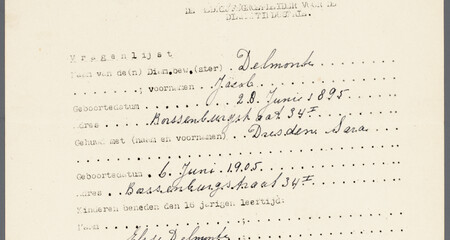 DIAMANTINDUSTRIE.
Vragenlijst
Naam van de(n) Diam.bew.(ster) Delmonte
; voornamen Jacob
Geboortedatum 28. Juni 1895
Adres Bossenburgstraat 34 I
Gehuwd met (naam en voornamen) Dresden Sara
Geboortedatum 6 Juni 1905
Adres Bossenburgstraat 34 I
Kinderen beneden den 16 jarigen leeftijd:
Naam ;
Elise Delmonte